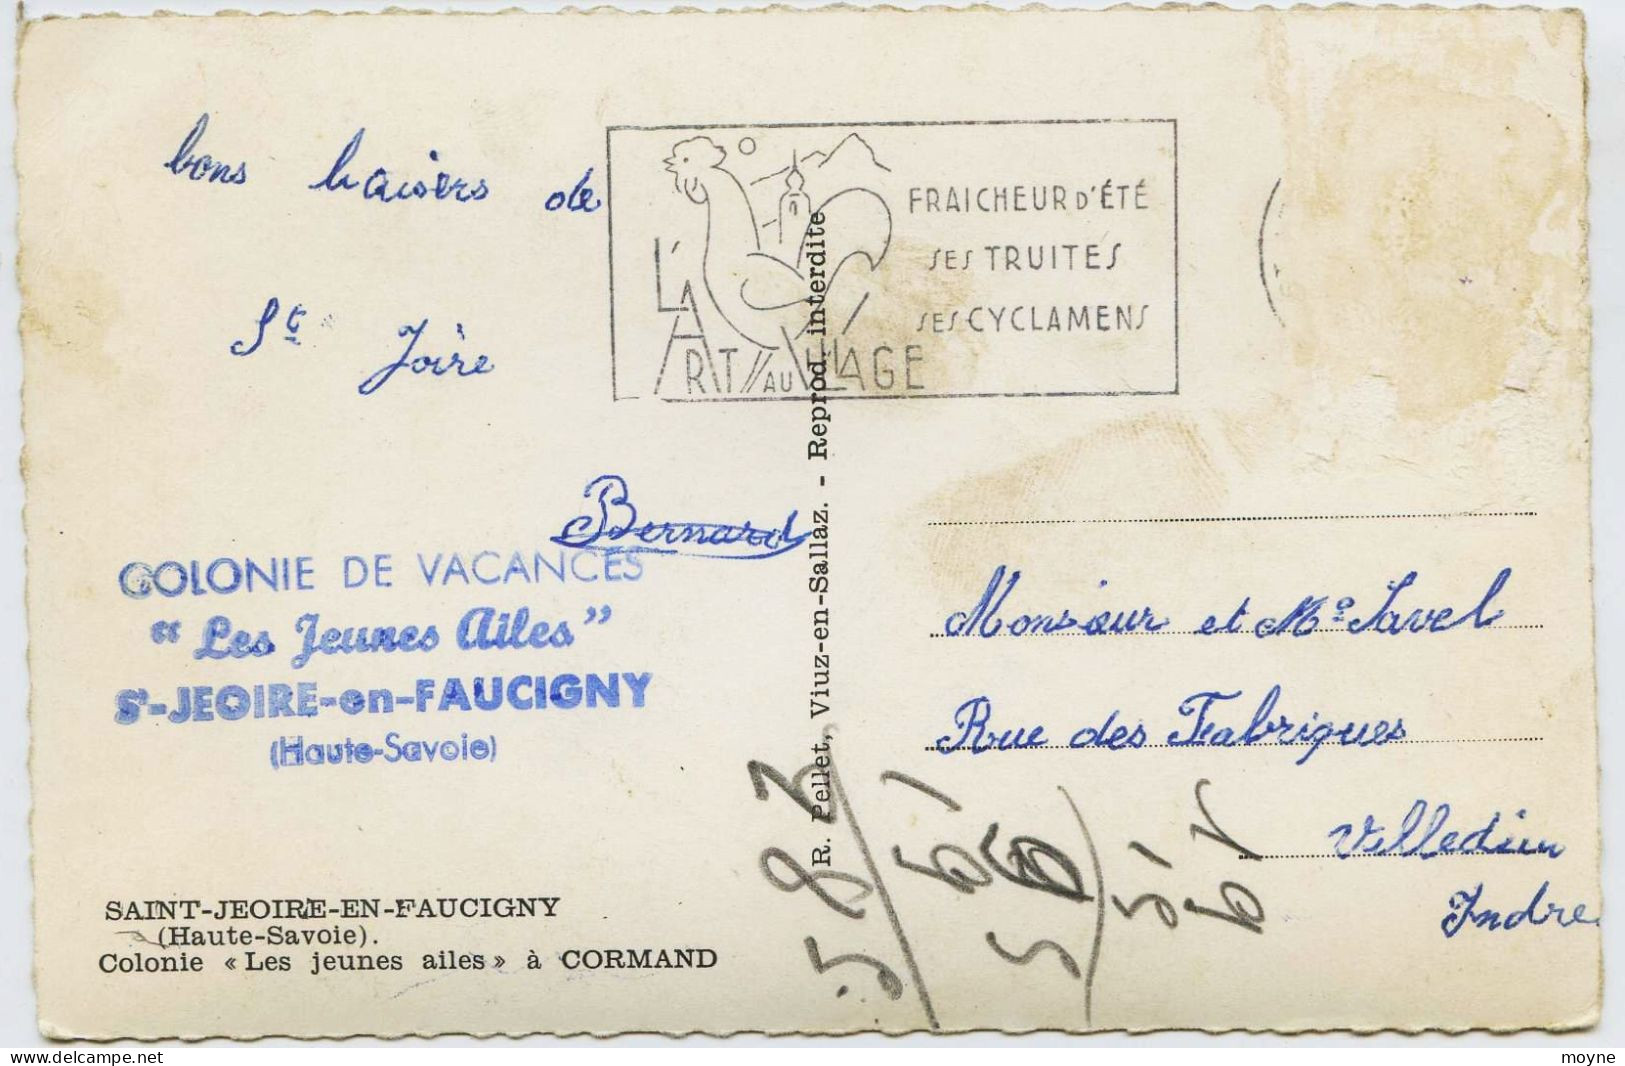 bons baisers de
St Joire
Bernard
L'ART AU VILLAGE
FRAICHEUR D'ÉTÉ
SES TRUITES
SES CYCLAMENS
COLONIE DE VACANCES
“Les Jeunes Ailes”
St-JEOIRE-en-FAUCIGNY
(Haute-Savoie)
SAINT-JEOIRE-EN-FAUCIGNY
(Haute-Savoie).
Colonie « Les jeunes ailes » à CORMAND
R. Pellet, Viuz-en-Sallaz. - Reprod. interdite
Monsieur et Me Savel
Rue des Fabriques
Villedieu
Indre
delcampe.net
moyne